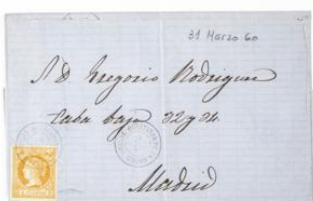 31 Marzo 60
A D Gregorio Rodriguez
Caba baja 32 y 34.
Madrid